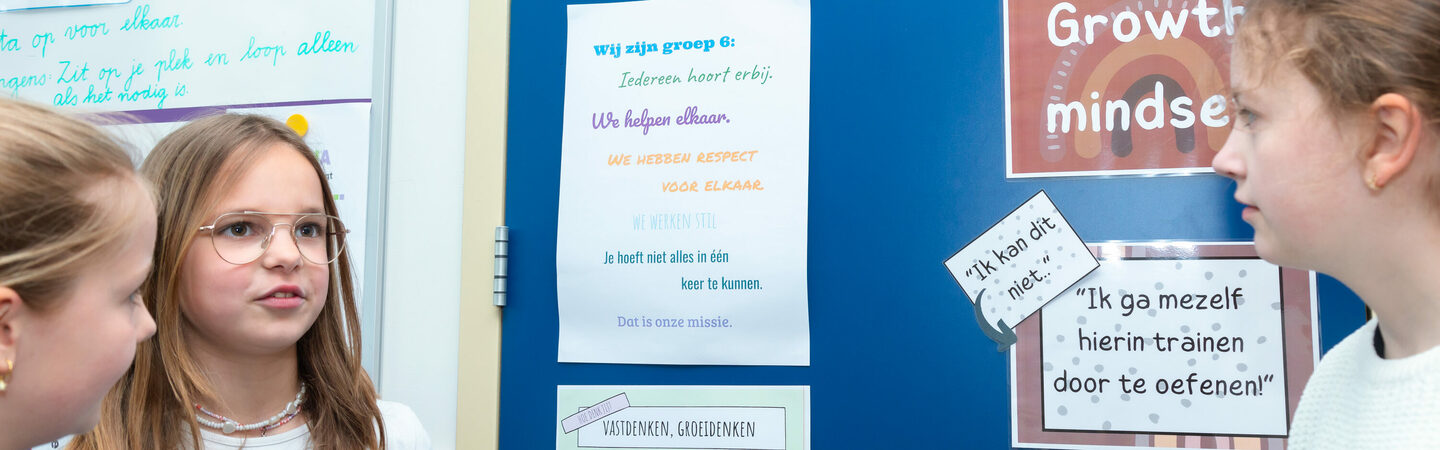 op voor elkaar.
Zit op je plek en loop alleen
als het nodig is.
Wij zijn groep 6:
Iedereen hoort erbij.
We helpen elkaar.
WE HEBBEN RESPECT
VOOR ELKAAR.
WE WERKEN STIL
Je hoeft niet alles in één
keer te kunnen.
Dat is onze missie.
HOE DENK JIJ?
VASTDENKEN, GROEIDENKEN
Growth
mindse
"Ik kan dit
niet..."
"Ik ga mezelf
hierin trainen
door te oefenen!"